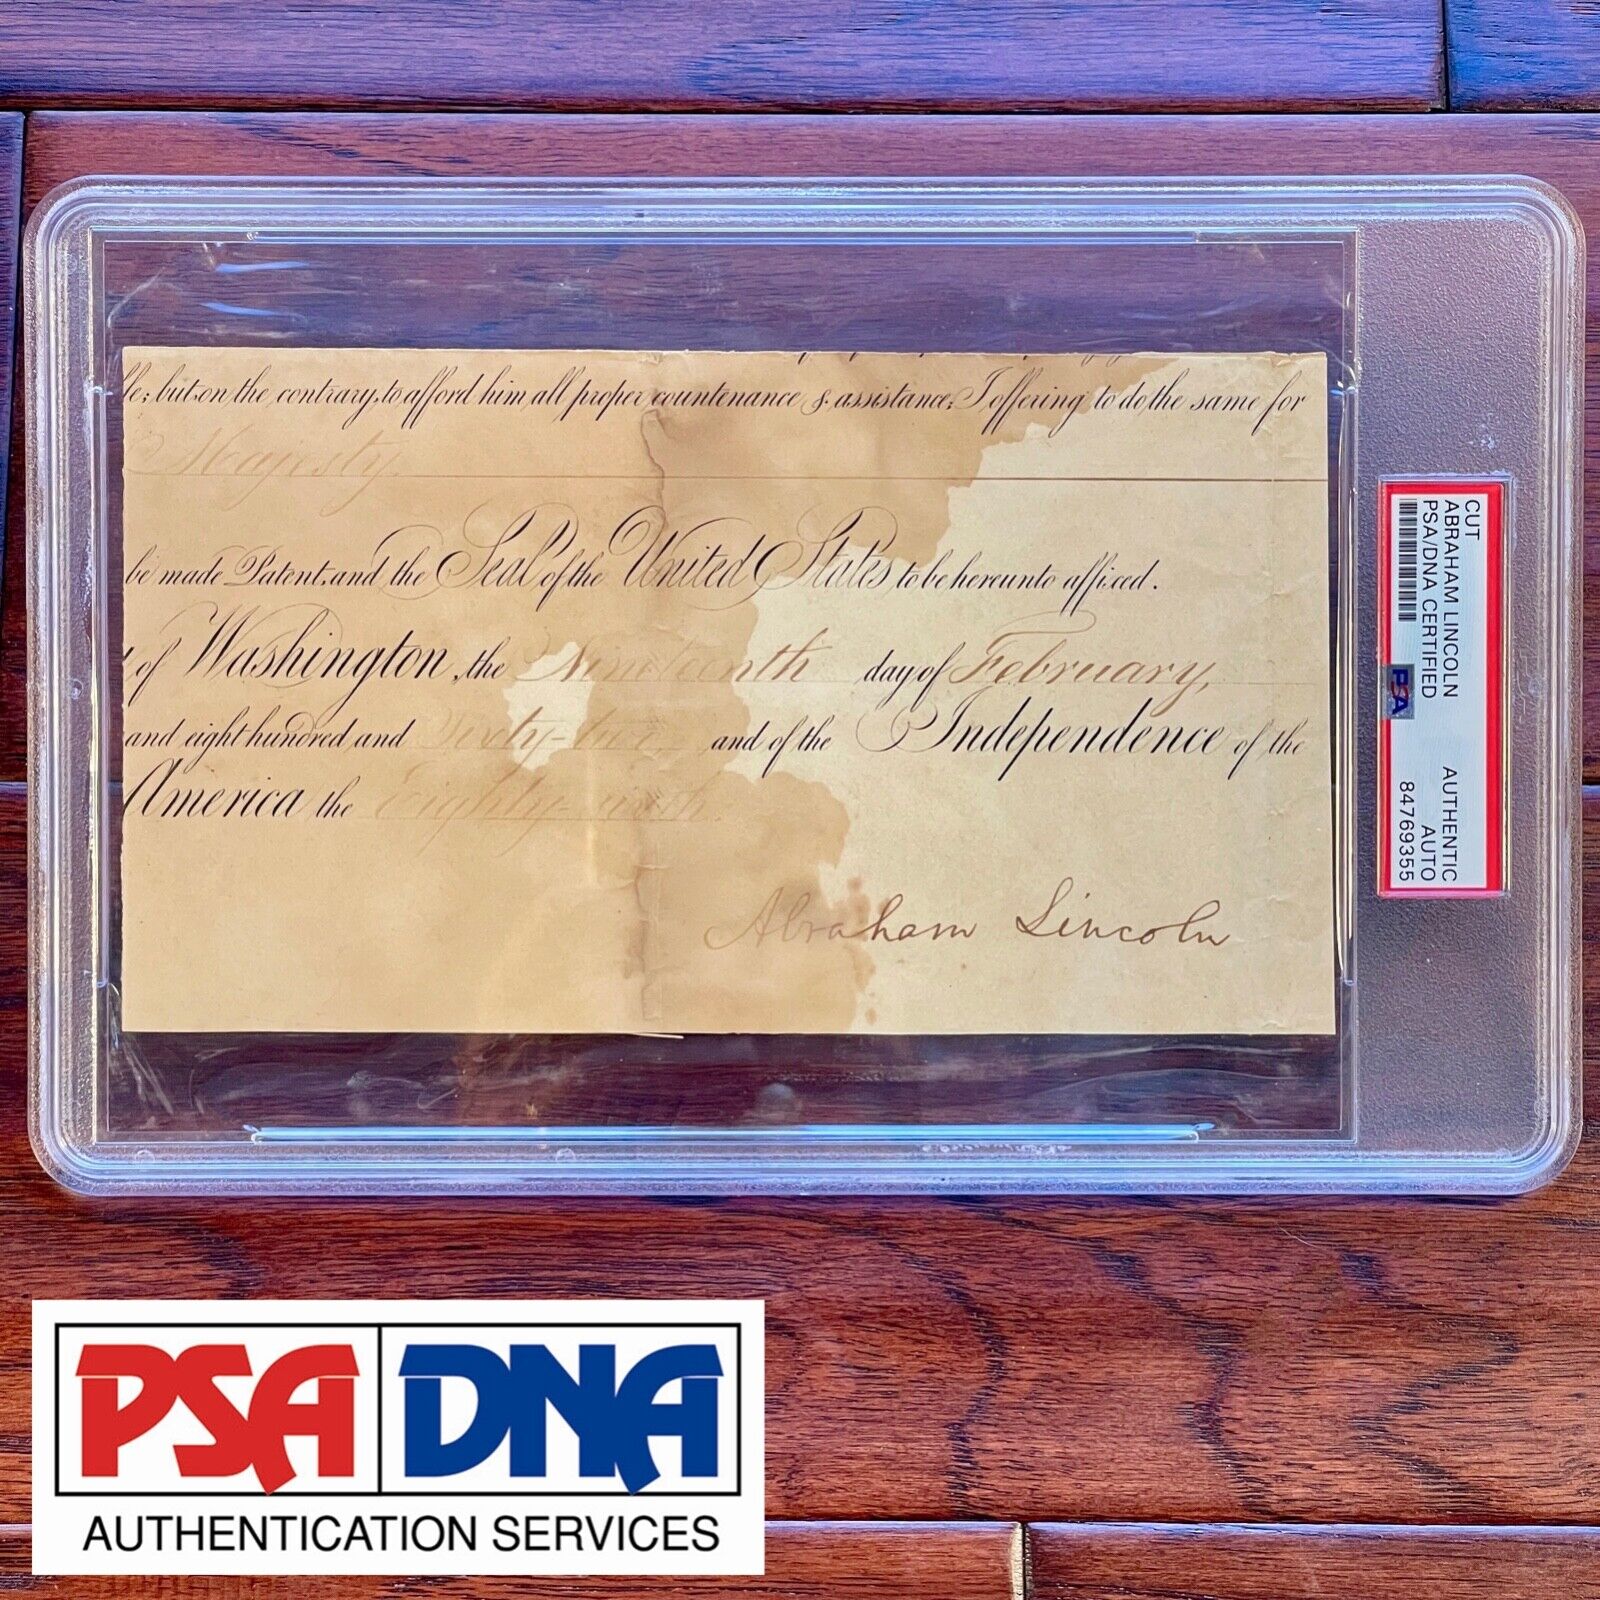 but on the contrary, to afford him all proper countenance & assistance; I offering to do the same for
Majesty.
be made Patent, and the Seal of the United States to be hereunto affixed.
of Washington, the Nineteenth day of February,
and eight hundred and Sixty-two, and of the Independence of the
America the Eighty-sixth.
Abraham Lincoln
CUT
ABRAHAM LINCOLN AUTHENTIC
PSA/DNA CERTIFIED AUTO
84769355
PSA
PSA DNA
AUTHENTICATION SERVICES